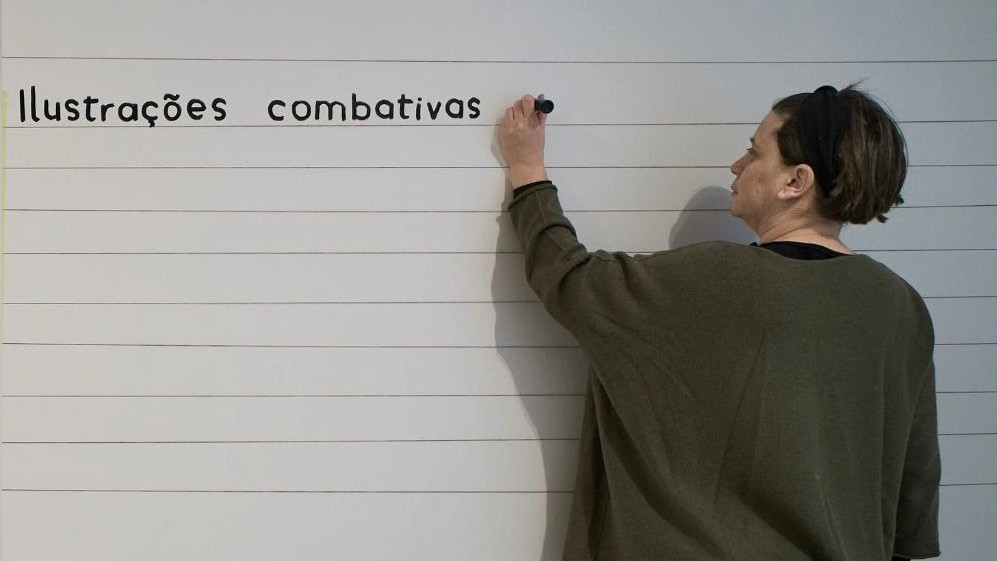 Ilustrações combativas